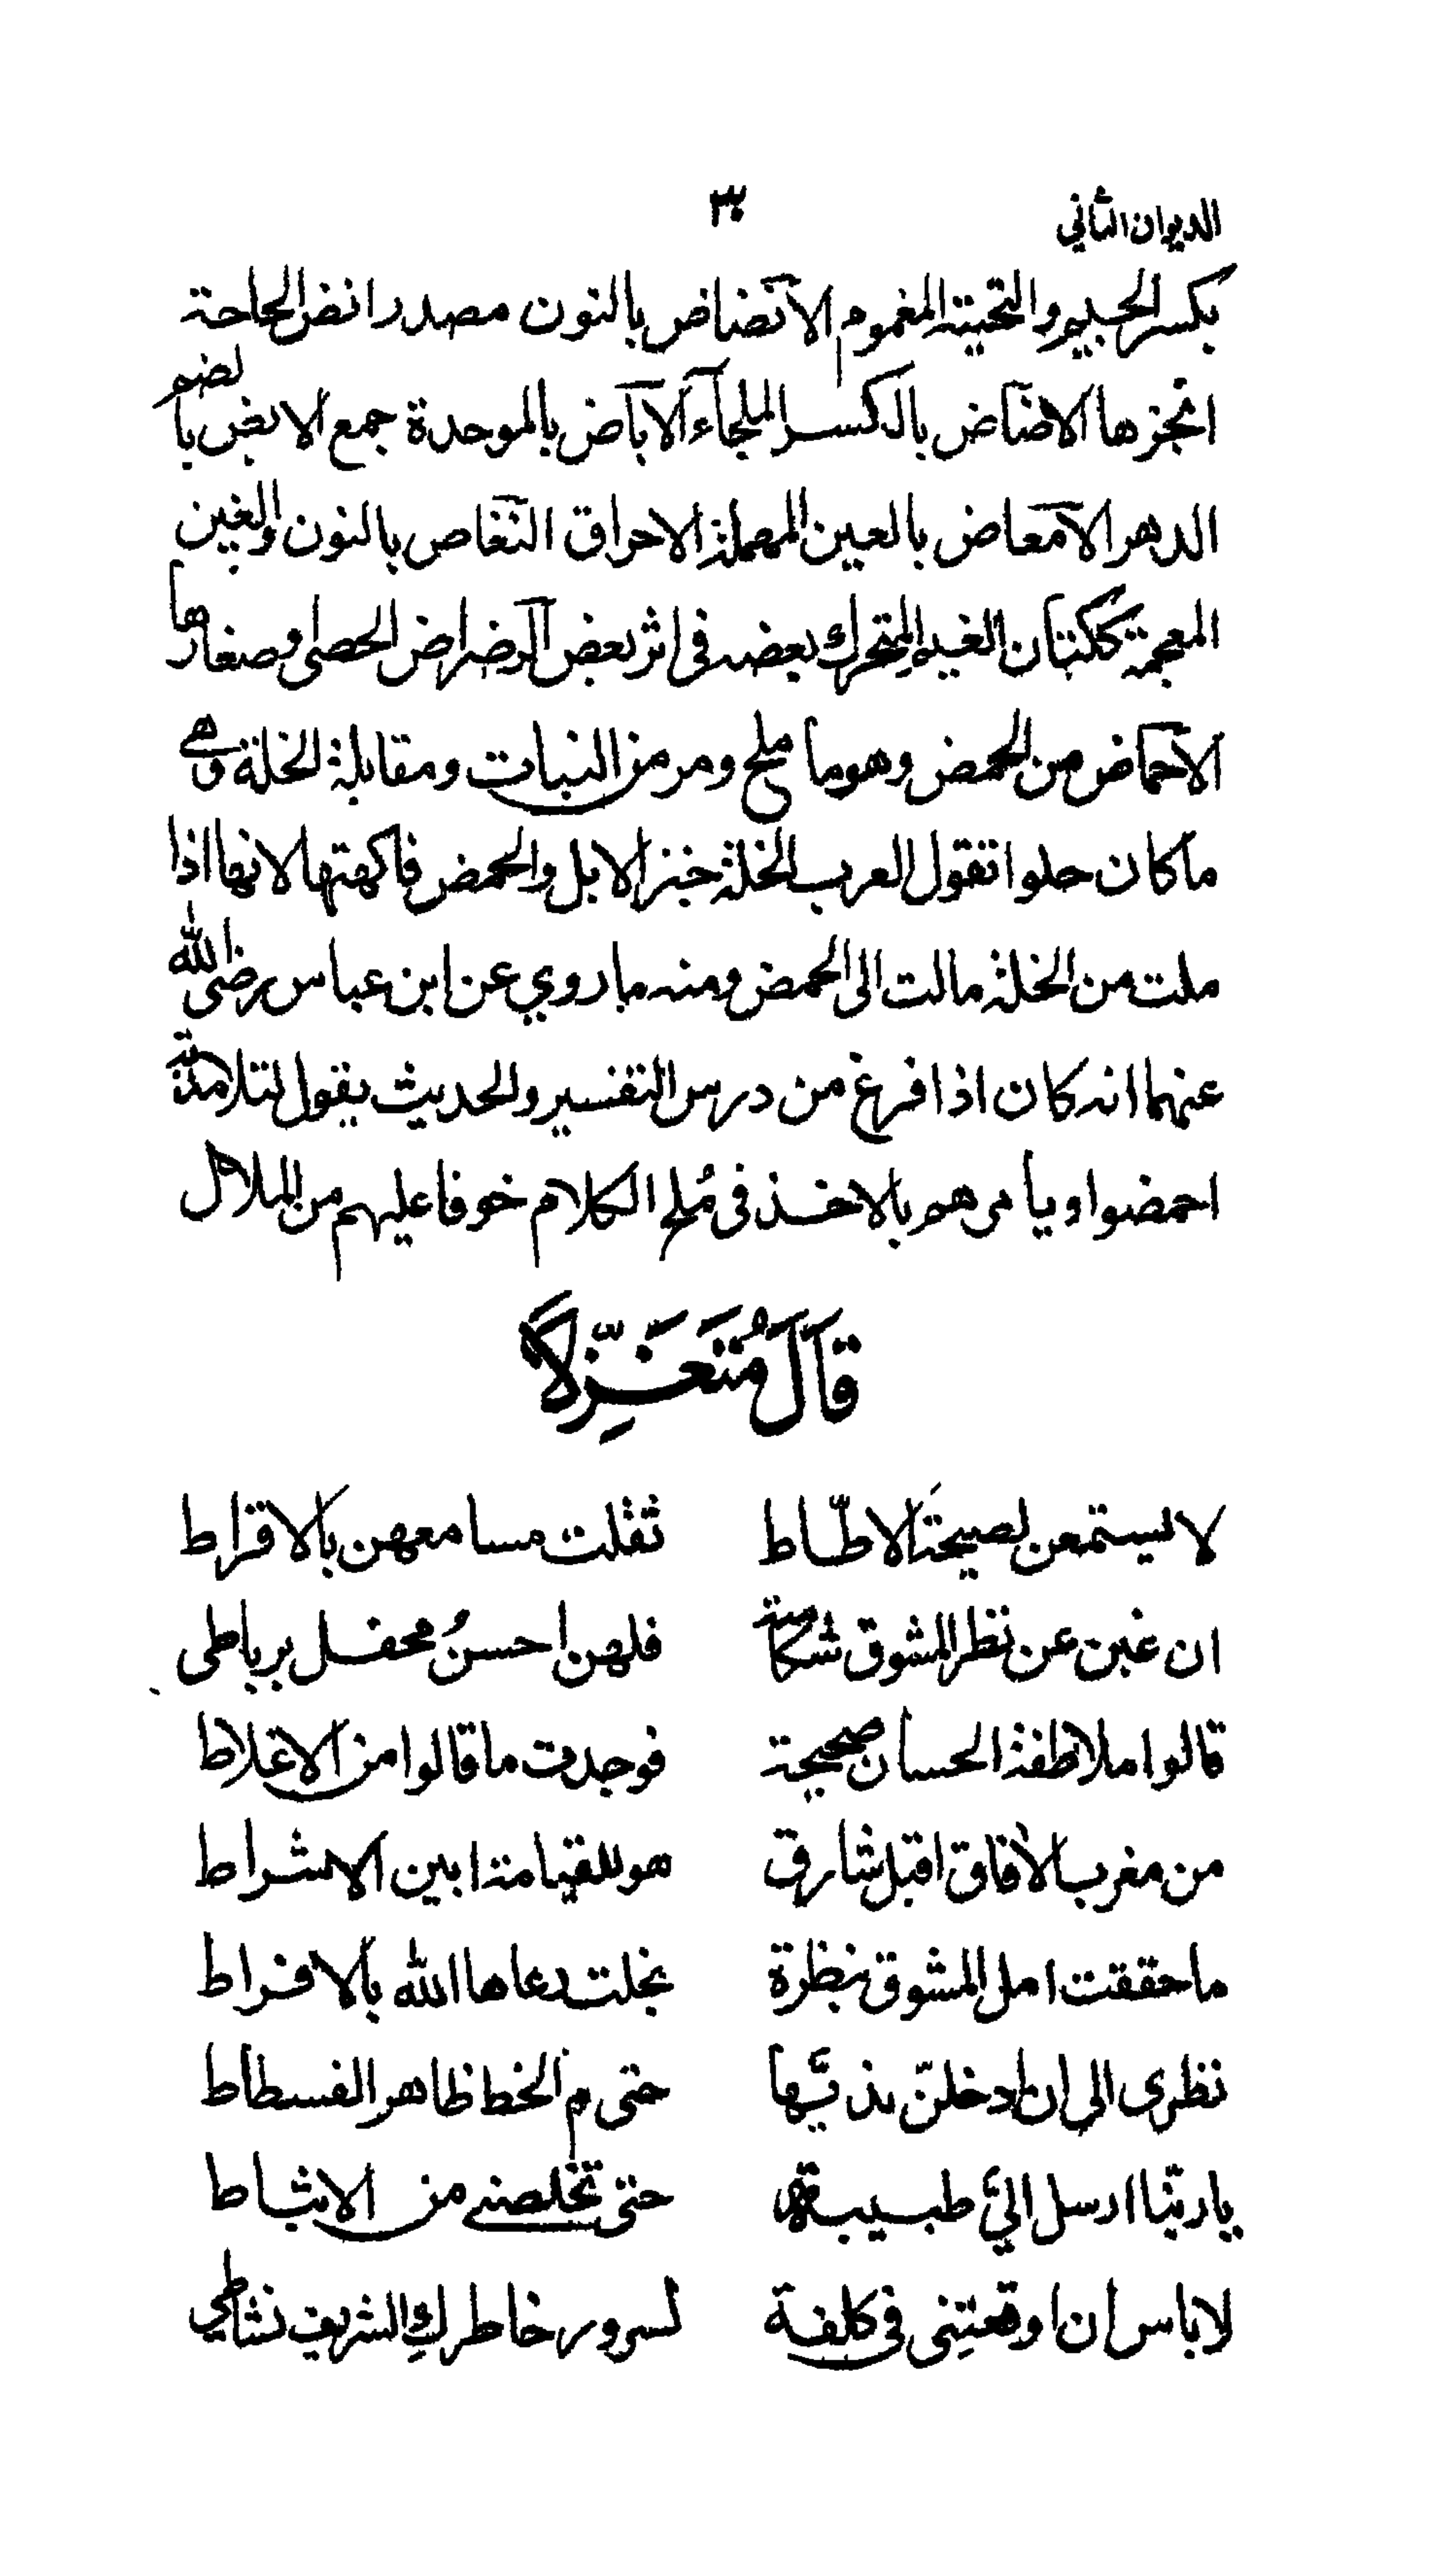 الديوان الثاني
٣٠
بكسر الجيم والتحتية المغموم الانضاض بالنون مصدر انض الحاجة
انجزها الاضاض بالكسر الملجاء الآباض بالموحدة جمع الابض بالضم
الدهر الامعاض بالعين المهملة الاحراق النغاص بالنون والغين
المعجمة ككتان الغيم المتحرك بعضه فى اثر بعض الرضراض الحصى وصغارها
الاحماض من الحمض وهو ما ملح ومر من النبات ومقابلة الخلة وهي
ما كان حلوا تقول العرب الخلة خبز الابل والحمض فاكهتها لانها اذا
ملت من الخلة مالت الى الحمض ومنه ما روي عن ابن عباس رضى الله
عنهما انه كان اذا فرغ من درس التفسير والحديث يقول لتلامذته
احمضوا ويامرهم بالاخذ فى مُلح الكلام خوفا عليهم من الملال
قَالَ مُتَغَزِّلًا
لا يستمعن لصيحة الاطّاط ثقلت مسامعهن بالاقراط
ان غبن عن نظر المشوق شكامة فلهن احسنُ محفل برباطى
قالوا ملاطفة الحسان صحيحة فوجدت ما قالوا من الاغلاط
من مغرب الآفاق اقبل شارق هو للقيامة ابين الاشراط
ما حققت امل المشوق بنظرة بخلت دعاها الله بالافراط
نظرى الى ان ادخلنّ بذيّها حتى م الخط ظاهر الفسطاط
يا ربّنا ارسل اليَّ طبيبة حتى تخلصنى من الانشاط
لا باس ان اوقعتِنى فى كلفة لسرور خاطركِ الشريف نشاطي